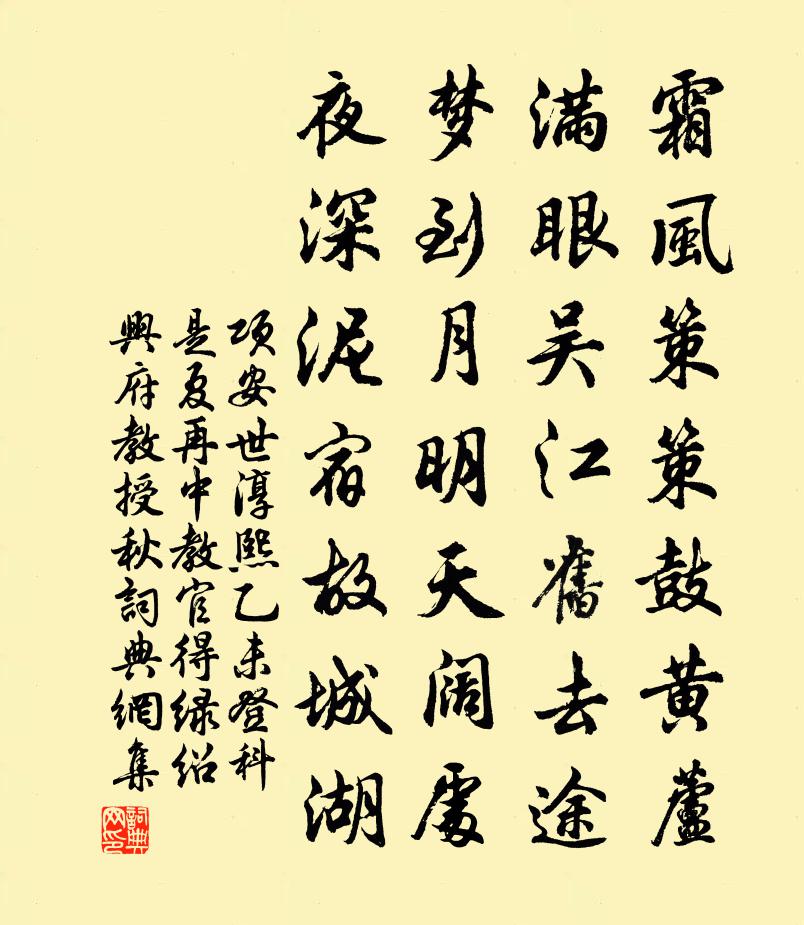 霜風策策鼓黄蘆
满眼吴江舊去途
梦到月明天阔處
夜深泥宿故城湖
项安世淳熙乙未登科
是夏再中教官得绿绍
興府教授秋詞典網集
詞典
网印